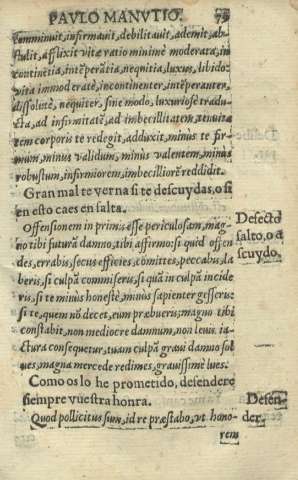 PAVLO MANVTIO. 79
comminuit, infirmauit, debilitauit, ademit, ab-
stulit, afflixit vitæ ratio minimè moderata, in
continētia, intēperātia, nequitia, luxus, libido:
vita immoderatè, incontinenter, intēperanter,
dissolutè, nequiter, sine modo, luxuriosè tradu-
cta, ad infirmitatē, ad imbecillitatem, tenuita
tem corporis te redegit, adduxit, minùs te fir-
mum, minus validum, minùs valentem, minus
robustum, infirmiorem, imbecilliorē reddidit.
Gran mal te verna si te descuydas, o si
en esto caes en falta.
Offensionem in primis esse periculosam, mag-
no tibi futurā damno, tibi affirmo: si quid offen
des, errabis, secus efficies, comittes, peccabis, la
beris, si culpā commiseris, si quā in culpā incide
ris, si te minùs honestè, minus sapienter gesseru:
si te, quem nō decet, eum præbueris; magno tibi
constabit, non mediocre damnum, non leuis ia-
ctura consequetur, tuam culpā graui damno sol
ues, magna mercede redimes, grauissimè lues.
Como os lo he prometido, defendere
siempre vuestra honra.
Quod pollicitus sum, id re præstabo, vt hono-
rem
Defecto
falto, o d
scuydo.
Defen-
der.